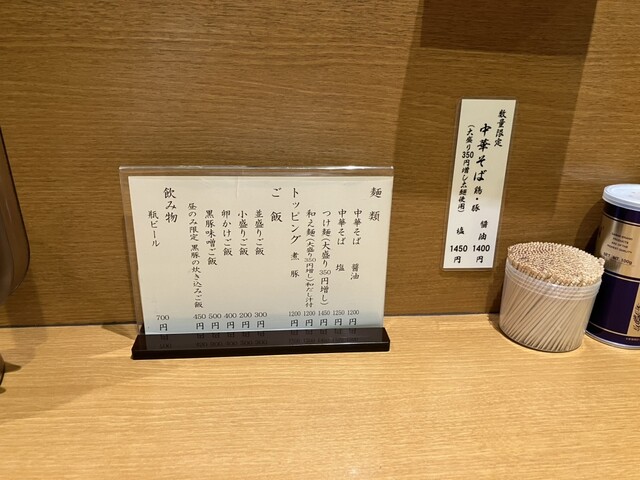 麺類
中華そば 醤油 1200円
中華そば 塩 1250円
つけ麺(大盛り350円増し) 1450円
和え麺(大盛り350円増し)和だし汁付 1200円
トッピング 煮豚 1200円
ご飯
並盛りご飯 300円
小盛りご飯 200円
卵かけご飯 400円
黒豚味噌ご飯 500円
昼のみ限定 黒豚の炊き込みご飯 450円
飲み物
瓶ビール 700円
数量限定
中華そば 鶏・豚 醤油 1400円
塩 1450円